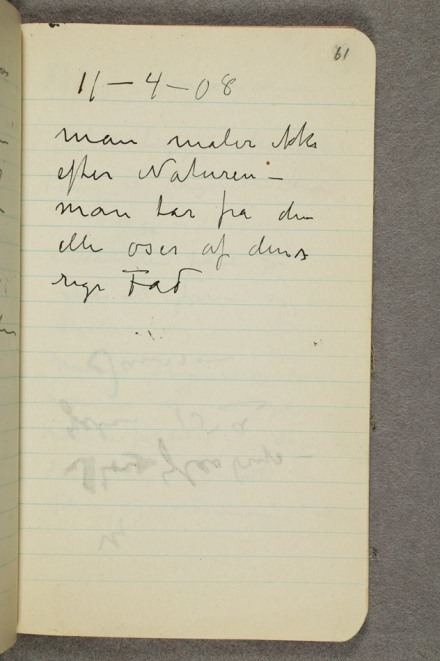 61
11–4–08
man maler ikke
efter Naturen –
man tar fra den
eller øser af dens
rige Fad